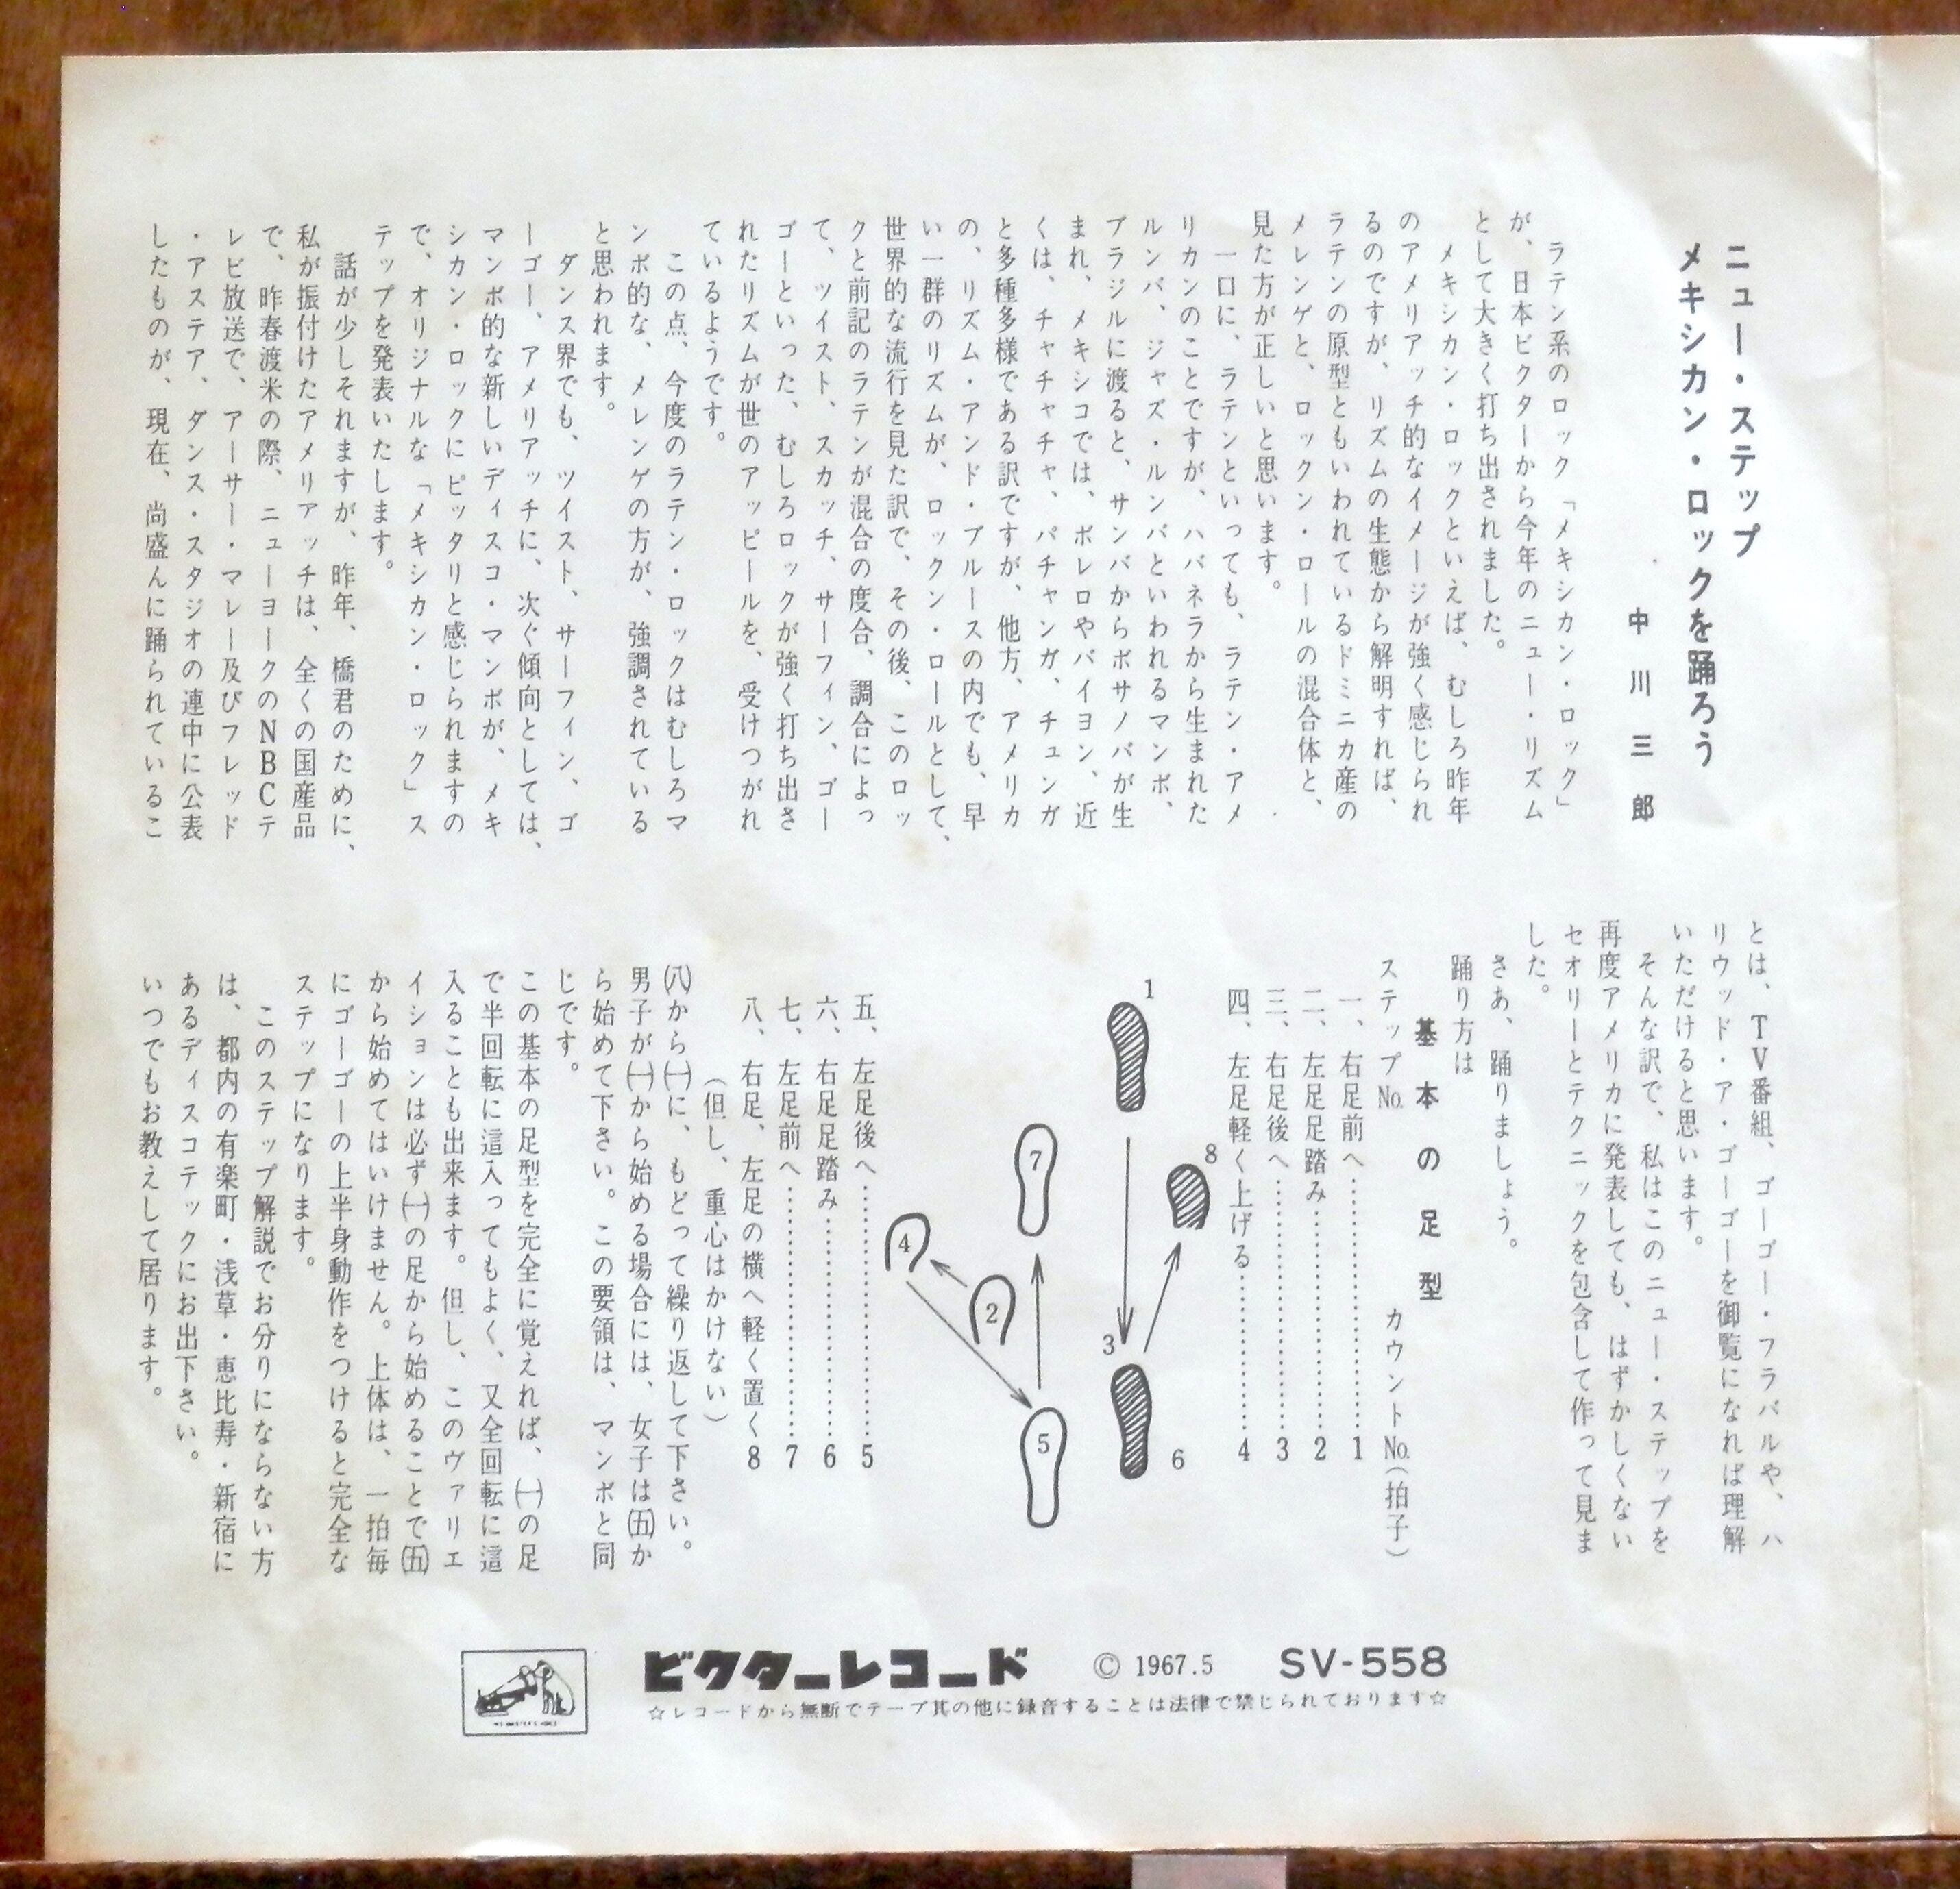 ニュー・ステップ
メキシカン・ロックを踊ろう
中川三郎
ラテン系のロック「メキシカン・ロック」
が、日本ビクターから今年のニュー・リズム
として大きく打ち出されました。
メキシカン・ロックといえば、むしろ昨年
のアメリアッチ的なイメージが強く感じられ
るのですが、リズムの生態から解明すれば、
ラテンの原型ともいわれているドミニカ産の
メレンゲと、ロックン・ロールの混合体と、
見た方が正しいと思います。
一口に、ラテンといっても、ラテン・アメ
リカンのことですが、ハバネラから生まれた
ルンバ、ジャズ・ルンバといわれるマンボ、
ブラジルに渡ると、サンバからボサノバが生
まれ、メキシコでは、ボレロやバイヨン、近
くは、チャチャチャ、パチャンガ、チュンガ
と多種多様である訳ですが、他方、アメリカ
の、リズム・アンド・ブルースの内でも、早
い一群のリズムが、ロックン・ロールとして、
世界的な流行を見た訳で、その後、このロッ
クと前記のラテンが混合の度合、調合によっ
て、ツイスト、スカッチ、サーフィン、ゴー
ゴーといった、むしろロックが強く打ち出さ
れたリズムが世のアッピールを、受けつがれ
ているようです。
この点、今度のラテン・ロックはむしろマ
ンボ的な、メレンゲの方が、強調されている
と思われます。
ダンス界でも、ツイスト、サーフィン、ゴ
ーゴー、アメリアッチに、次ぐ傾向としては、
マンボ的な新しいディスコ・マンボが、メキ
シカン・ロックにピッタリと感じられますの
で、オリジナルな「メキシカン・ロック」ス
テップを発表いたします。
話が少しそれますが、昨年、橋君のために、
私が振付けたアメリアッチは、全くの国産品
で、昨春渡米の際、ニューヨークのNBCテ
レビ放送で、アーサー・マレー及びフレッド
・アステア、ダンス・スタジオの連中に公表
したものが、現在、尚盛んに踊られているこ
とは、TV番組、ゴーゴー・フラバルや、ハ
リウッド・ア・ゴーゴーを御覧になれば理解
いただけると思います。
そんな訳で、私はこのニュー・ステップを
再度アメリカに発表しても、はずかしくない
セオリーとテクニックを包含して作って見ま
した。
さあ、踊りましょう。
踊り方は
基本の足型
ステップNo. カウントNo.(拍子)
一、右足前へ……………1
二、左足足踏み……………2
三、右足後へ……………3
四、左足軽く上げる……………4
1
8
7
4
2
3
5
6
五、左足後へ……………5
六、右足足踏み……………6
七、左足前へ……………7
八、右足、左足の横へ軽く置く8
(但し、重心はかけない)
㈧から㈠に、もどって繰り返して下さい。
男子が㈠から始める場合には、女子は㈤か
ら始めて下さい。この要領は、マンボと同
じです。
この基本の足型を完全に覚えれば、㈠の足
で半回転に這入ってもよく、又全回転に這
入ることも出来ます。但し、このヴァリエ
イションは必ず㈠の足から始めることで㈤
から始めてはいけません。上体は、一拍毎
にゴーゴーの上半身動作をつけると完全な
ステップになります。
このステップ解説でお分りにならない方
は、都内の有楽町・浅草・恵比寿・新宿に
あるディスコテックにお出下さい。
いつでもお教えして居ります。
ビクターレコード © 1967.5 SV-558
☆レコードから無断でテープ其の他に録音することは法律で禁じられております☆
"HIS MASTER'S VOICE"